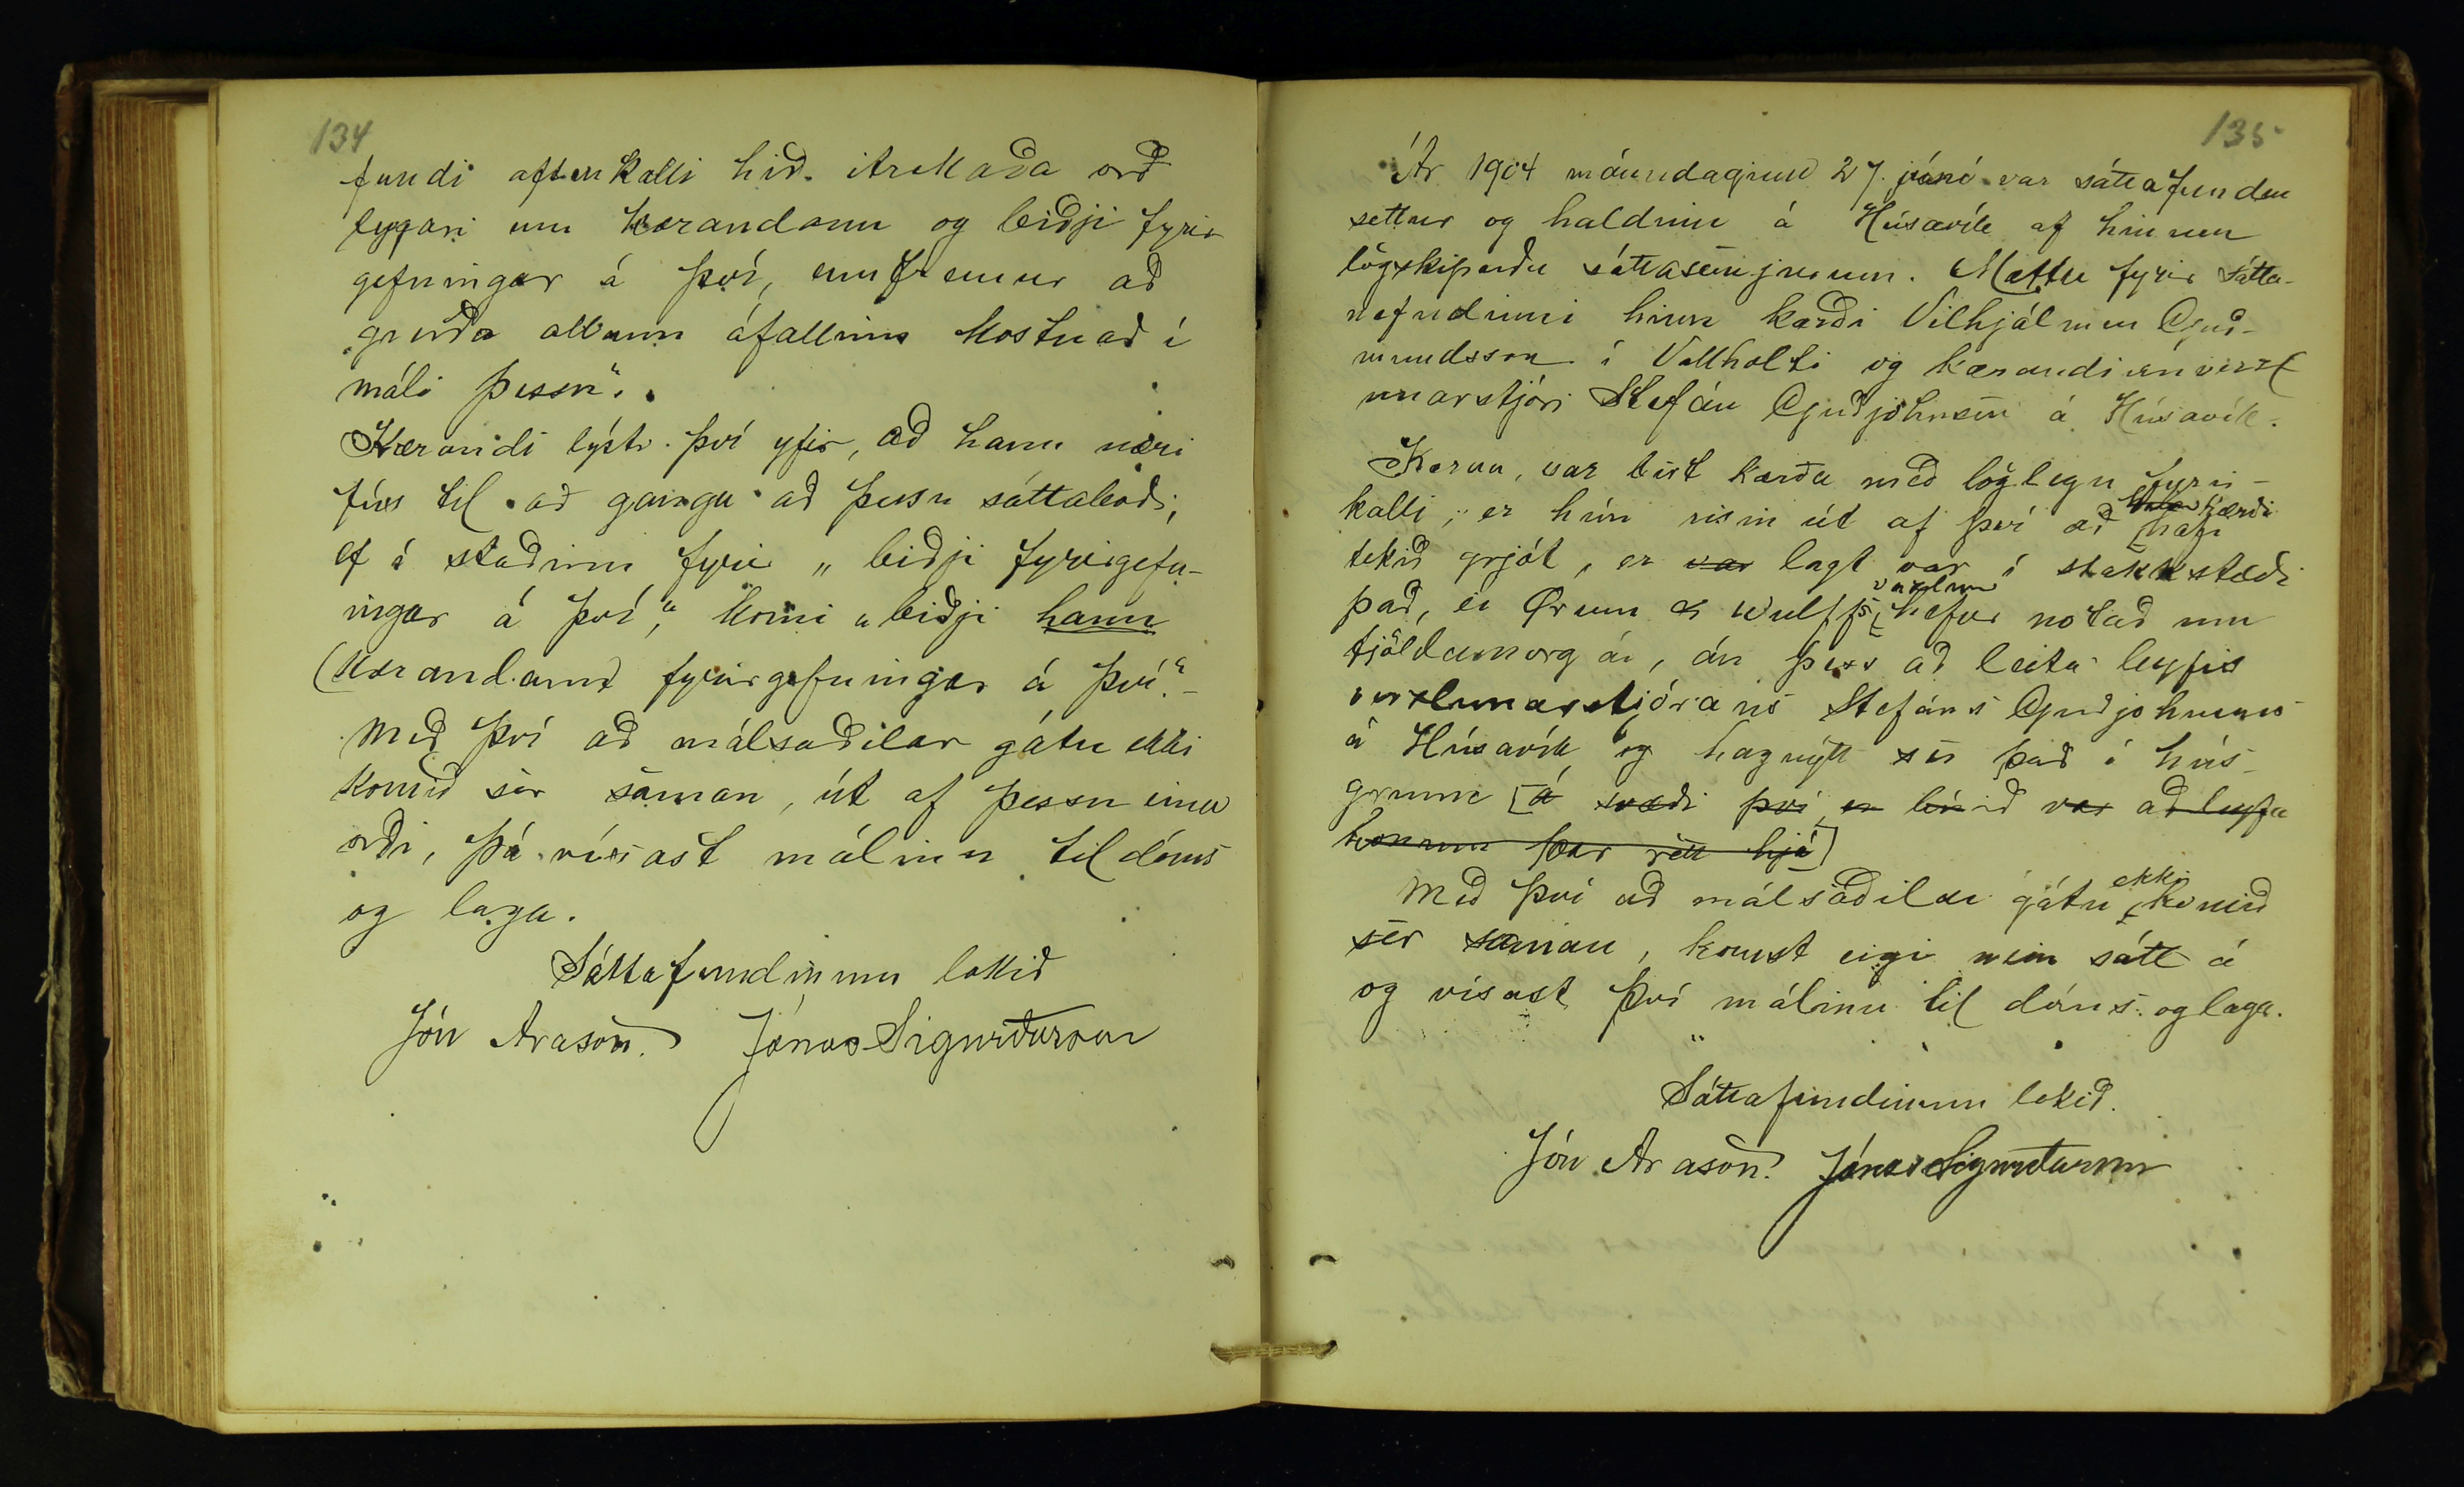 134
fundi afturkalli hið ítrekaða orð
lygari um kærandann og biðji fyrir
gefningar á því, ennfremur að
greiða allann áfallinn kostnað í
máli þessu".
Kærandi lýsti því yfir, að hann væri
fús til að ganga að þessu sáttaboði,
ef í staðinn fyrir „biðji fyrirgefn-
ingar á því," komi „biðji hann
(kærandann) fyrirgefningar á því."-
Með því að málsaðilar gátu ekki
komið sér saman, út af þessu eina
orði, þá vísast málinu til dóms
og laga.
Sáttafundinum lokið
Jón Arason. Jónas Sigurðsson
135
Ár 1904 mánudaginn 27. júní var sáttafundur
settur og haldinn á Húsavík af hinum
lögskipuðu sáttasemjurum. Mættu fyrir sátta-
nefndinni hinn kærði Vilhjálmur Guð-
mundsson í Vallholti og kærandinn verzl
unarstjóri Stefán Guðjohnsen á Húsavík.
Kæran, var birt kærða með löglegu fyrir-
kalli, er hún risin út af því að kærði hafi
tekið grjót, er var lagt var í stakkstæði
það, er Ørum & Wulffs verzlun hefur notað um
fjöldamörg ár, án þess að leita leyfis
verzlunarstjórans Stefáns Guðjohnsens
á Húsavík, og hagnýtt sér það í hús-
grunn [á svæði því, er búið var að leyfa
honum þar rétt hjá]
Með því að málsaðilar gátu ekki komið
sér saman, komst eigi nein sátt á
og vísast því málinu til dóms og laga.
Sáttafundinum lokið.
Jón Arason. Jónas Sigurðsson